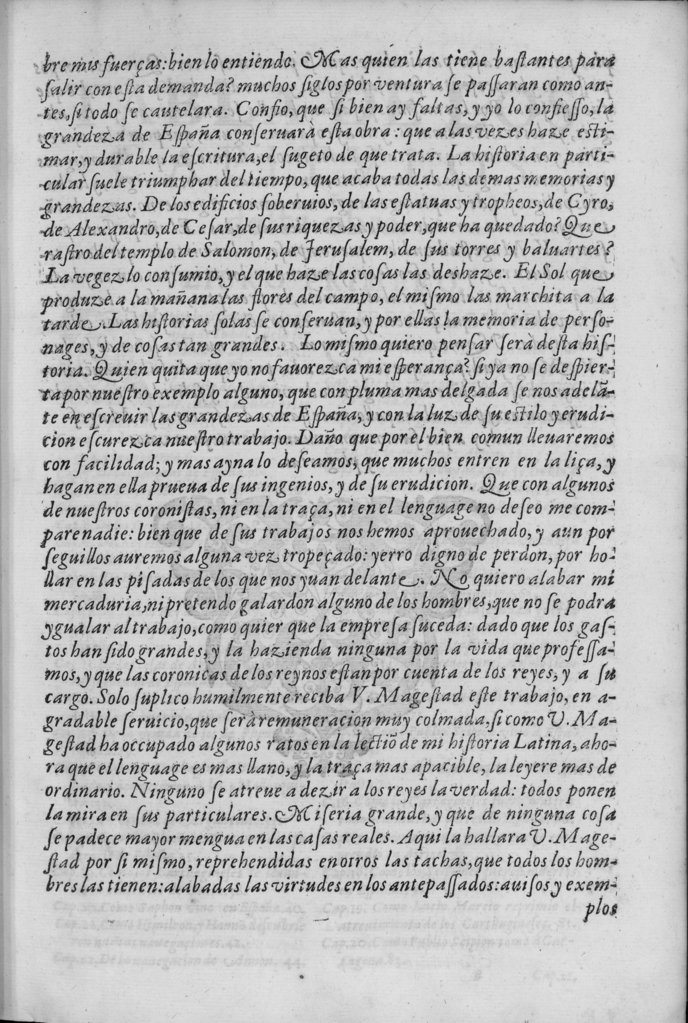 bre mis fuerças: bien lo entiendo. Mas quien las tiene bastantes para
salir con esta demanda? muchos siglos por ventura se passaran como an-
tes, si todo se cautelara. Confio, que si bien ay faltas, y yo lo confiesso, la
grandeza de España conseruarà esta obra: que a las vezes haze esti-
mar, y durable la escritura, el sugeto de que trata. La historia en parti-
cular suele triumphar del tiempo, que acaba todas las demas memorias y
grandezas. De los edificios soberuios, de las estatuas y tropheos, de Cyro,
de Alexandro, de Cesar, de sus riquezas y poder, que ha quedado? Que
rastro del templo de Salomon, de Jerusalem, de sus torres y baluartes?
La vegez lo consumio, y el que haze las cosas las deshaze. El Sol que
produze a la mañana las flores del campo, el mismo las marchita a la
tarde. Las historias solas se conseruan, y por ellas la memoria de perso-
nages, y de cosas tan grandes. Lo mismo quiero pensar serà desta his-
toria. Quien quita que yo no fauorezca mi esperança? si ya no se despier-
ta por nuestro exemplo alguno, que con pluma mas delgada se nos adelã-
te en escreuir las grandezas de España, y con la luz de su estilo y erudi-
cion escurezca nuestro trabajo. Daño que por el bien comun lleuaremos
con facilidad; y mas ayna lo deseamos, que muchos entren en la liça, y
hagan en ella prueua de sus ingenios, y de su erudicion. Que con algunos
de nuestros coronistas, ni en la traça, ni en el lenguage no deseo me com-
pare nadie: bien que de sus trabajos nos hemos aprouechado, y aun por
seguillos auremos alguna vez tropeçado: yerro digno de perdon, por ho-
llar en las pisadas de los que nos yuan delante. No quiero alabar mi
mercaduria, ni pretendo galardon alguno de los hombres, que no se podra
ygualar al trabajo, como quier que la empresa suceda: dado que los gas-
tos han sido grandes, y la hazienda ninguna por la vida que professa-
mos, y que las coronicas de los reynos estan por cuenta de los reyes, y a su
cargo. Solo suplico humilmente reciba V. Magestad este trabajo, en a-
gradable seruicio, que serà remuneracion muy colmada, si como V. Ma-
gestad ha occupado algunos ratos en la lectiõ de mi historia Latina, aho-
ra que el lenguage es mas llano, y la traça mas apacible, la leyere mas de
ordinario. Ninguno se atreue a dezir a los reyes la verdad: todos ponen
la mira en sus particulares. Miseria grande, y que de ninguna cosa
se padece mayor mengua en las casas reales. Aqui la hallara V. Mage-
stad por si mismo, reprehendidas en otros las tachas, que todos los hom-
bres las tienen: alabadas las virtudes en los antepassados: auisos y exem-
plos